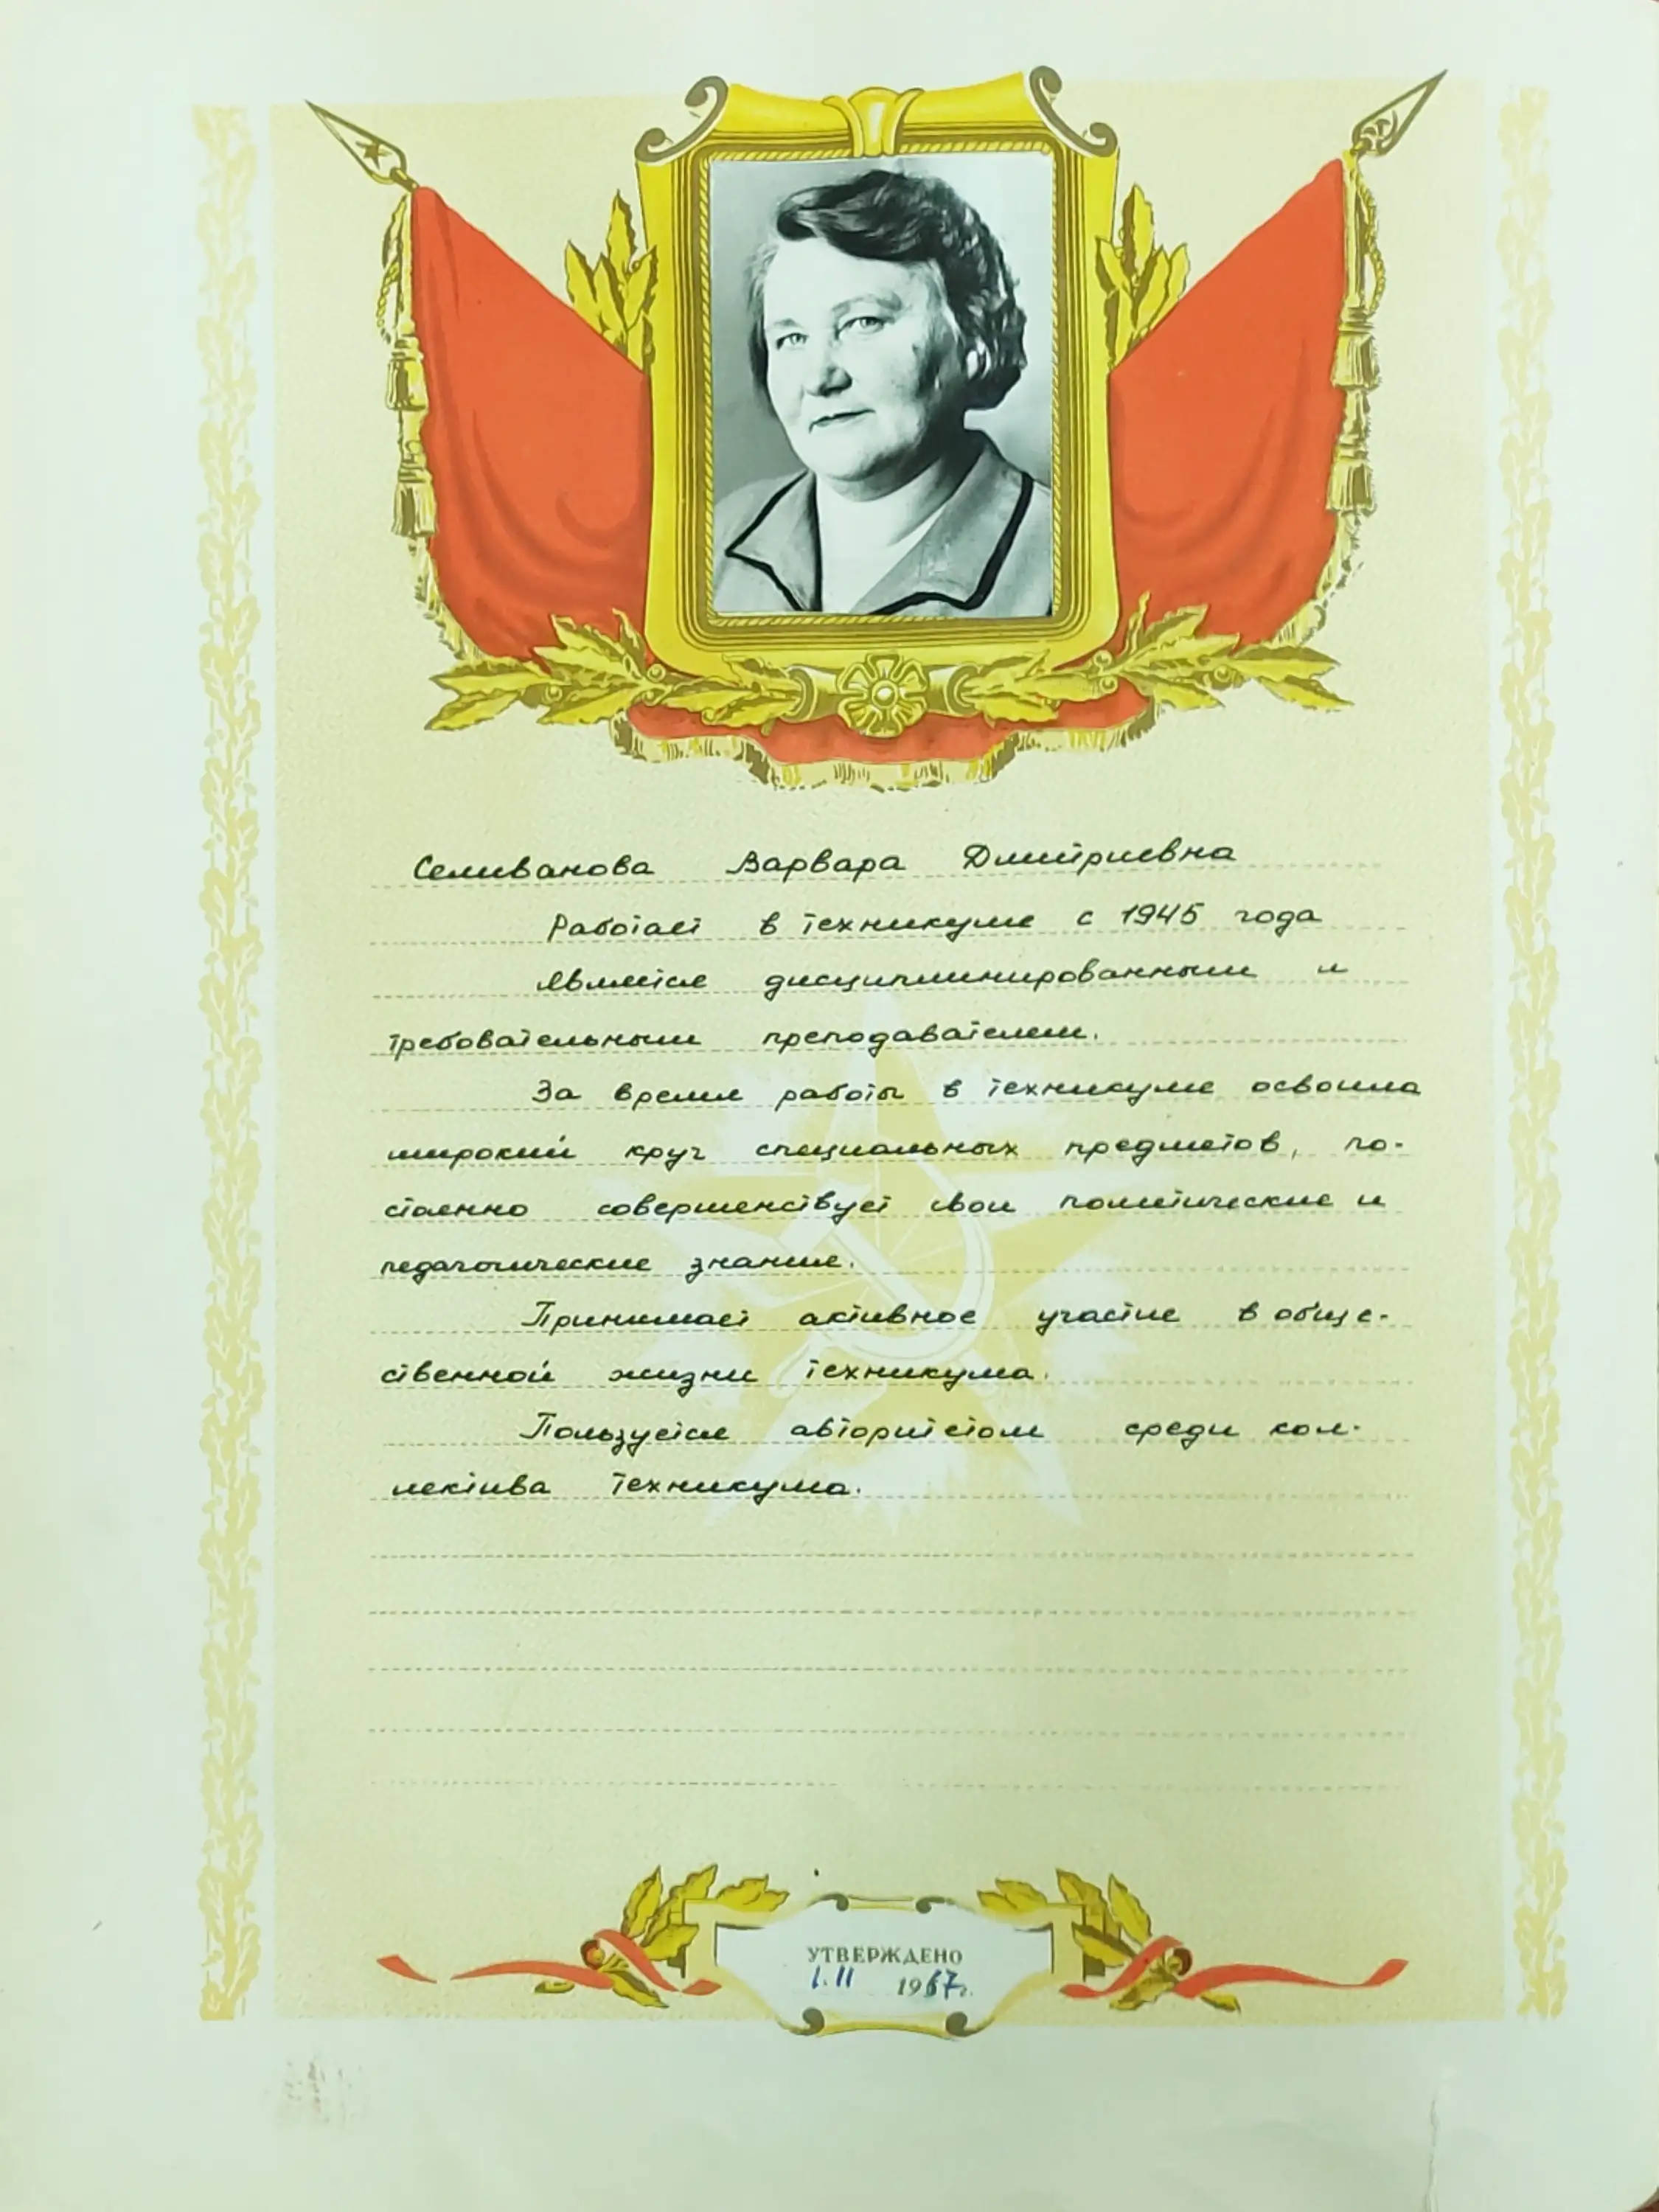 Селиванова Варвара Дмитриевна
Работает в техникуме с 1945 года
Является дисциплинированным и
требовательным преподавателем.
За время работы в техникуме освоила
широкий круг специальных предметов, по-
стоянно совершенствует свои политические и
педагогические знания.
Принимает активное участие в обще-
ственной жизни техникума.
Пользуется авторитетом среди кол-
лектива техникума.
УТВЕРЖДЕНО
1.II 1967г.